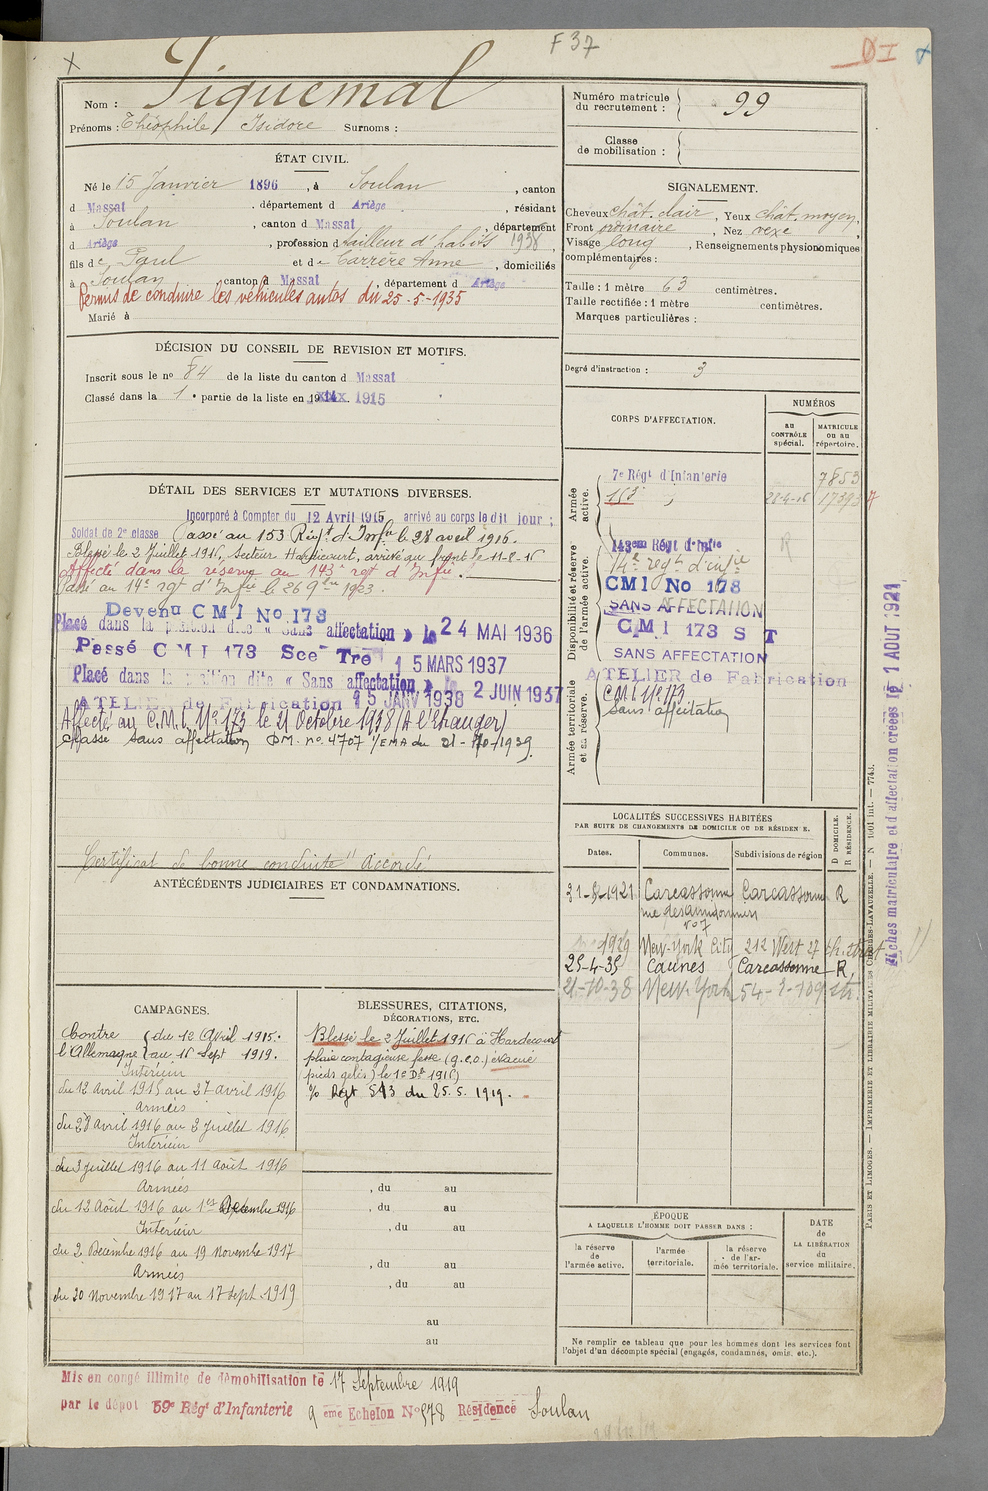 F 37
Nom : Piquemal
Prénoms : Théophile Isidore Surnoms :
Numéro matricule du recrutement : 99
Classe de mobilisation :
ÉTAT CIVIL.
Né le 15 Janvier 1896, à Soulan, canton
d Massat, département d Ariège, résidant
à Soulan, canton d Massat, département
d Ariège, profession d tailleur d'habits 1938,
fils de Paul et de Carrère Anne, domiciliés
à Soulan, canton d Massat, département d Ariège
Permis de conduire les véhicules autos du 25-5-1935
Marié à
SIGNALEMENT.
Cheveux chât. clair, Yeux chât. moyen,
Front ordinaire, Nez vexe,
Visage long, Renseignements physionomiques
complémentaires :
Taille : 1 mètre 63 centimètres.
Taille rectifiée : 1 mètre centimètres.
Marques particulières :
Degré d'instruction : 3
DÉCISION DU CONSEIL DE REVISION ET MOTIFS.
Inscrit sous le no 84 de la liste du canton d Massat
Classé dans la 1e partie de la liste en 1915
DÉTAIL DES SERVICES ET MUTATIONS DIVERSES.
Incorporé à Compter du 12 Avril 1915 arrivé au corps le dit jour ;
Soldat de 2e classe Passé au 153 Régt d'Infie le 28 avril 1916.
Blessé le 2 Juillet 1916, secteur Hardicourt, arrivé au front le 11-8-16
Affecté dans la réserve au 143e regt d'Infie.
Passé au 14e regt d'Infie le 26 9bre 1923.
Devenu CMI No 173
Placé dans la position dite « Sans affectation » le 24 MAI 1936
Passé CMI 173 Sce Tre 15 MARS 1937
Placé dans la position dite « Sans affectation » le 2 JUIN 1937
ATELIER de Fabrication 15 JANV 1938
Affecté au C.M.I. No 173 le 21 Octobre 1938 (A l'Etranger)
Classé sans affectation DM. no. 4707 1/EMA du 21-10-1939.
Certificat de bonne conduite "accordé"
CORPS D'AFFECTATION.
NUMÉROS
au CONTRÔLE spécial.
MATRICULE ou au répertoire.
Armée active.
7e Régt d'Infanterie 7853
153 28-4-16 17393
Disponibilité et réserve de l'armée active.
143em Régt d'Infie R
14e regt d'infie
CMI No 173
SANS AFFECTATION
CMI 173 S T
SANS AFFECTATION
ATELIER de Fabrication
Armée territoriale et sa réserve.
C.M.I. No 173
Sans affectation
Fiches matriculaire et d'affectation créées le 1 AOUT 1921
LOCALITÉS SUCCESSIVES HABITÉES
PAR SUITE DE CHANGEMENTS DE DOMICILE OU DE RÉSIDENCE.
Dates. Communes. Subdivisions de région D DOMICILE. R RÉSIDENCE.
1921 Carcassonne Carcassonne R
no 7
1929 New-York City 212 West 27 th. street
25-4-35 Caunes Carcassonne R
21-10-38 New-York 54-2-109 str.
ANTÉCÉDENTS JUDICIAIRES ET CONDAMNATIONS.
CAMPAGNES.
Contre l'Allemagne du 12 Avril 1915.
au 16 Sept 1919.
Intérieur
du 12 avril 1915 au 27 avril 1916
Armées
du 28 avril 1916 au 2 juillet 1916
Intérieur
du 3 juillet 1916 au 11 Août 1916
Armées
du 12 Août 1916 au 1er Décembre 1916
Intérieur
du 2 Décembre 1916 au 19 Novembre 1917
Armées
du 20 Novembre 1917 au 17 sept. 1919
BLESSURES, CITATIONS,
DÉCORATIONS, ETC.
Blessé le 2 Juillet 1916 à Hardecourt
plaie contagieuse fesse (g.e.o.) évacué
pieds gelés) le 1er Dbre 1916)
O/ Regt 543 du 25.5.1919.
, du au
, du au
, du au
, du au
, du au
au
au
ÉPOQUE
A LAQUELLE L'HOMME DOIT PASSER DANS :
la réserve de l'armée active.
l'armée territoriale.
la réserve de l'armée territoriale.
DATE de LA LIBÉRATION du service militaire.
Ne remplir ce tableau que pour les hommes dont les services font
l'objet d'un décompte spécial (engagés, condamnés, omis, etc.).
PARIS ET LIMOGES. — IMPRIMERIE ET LIBRAIRIE MILITAIRES CHARLES-LAVAUZELLE. — N 1001 int. — 7743.
Mis en congé illimité de démobilisation le 17 Septembre 1919
par le dépot 59e Régt d'Infanterie 9 eme Echelon No 578 Résidence Soulan